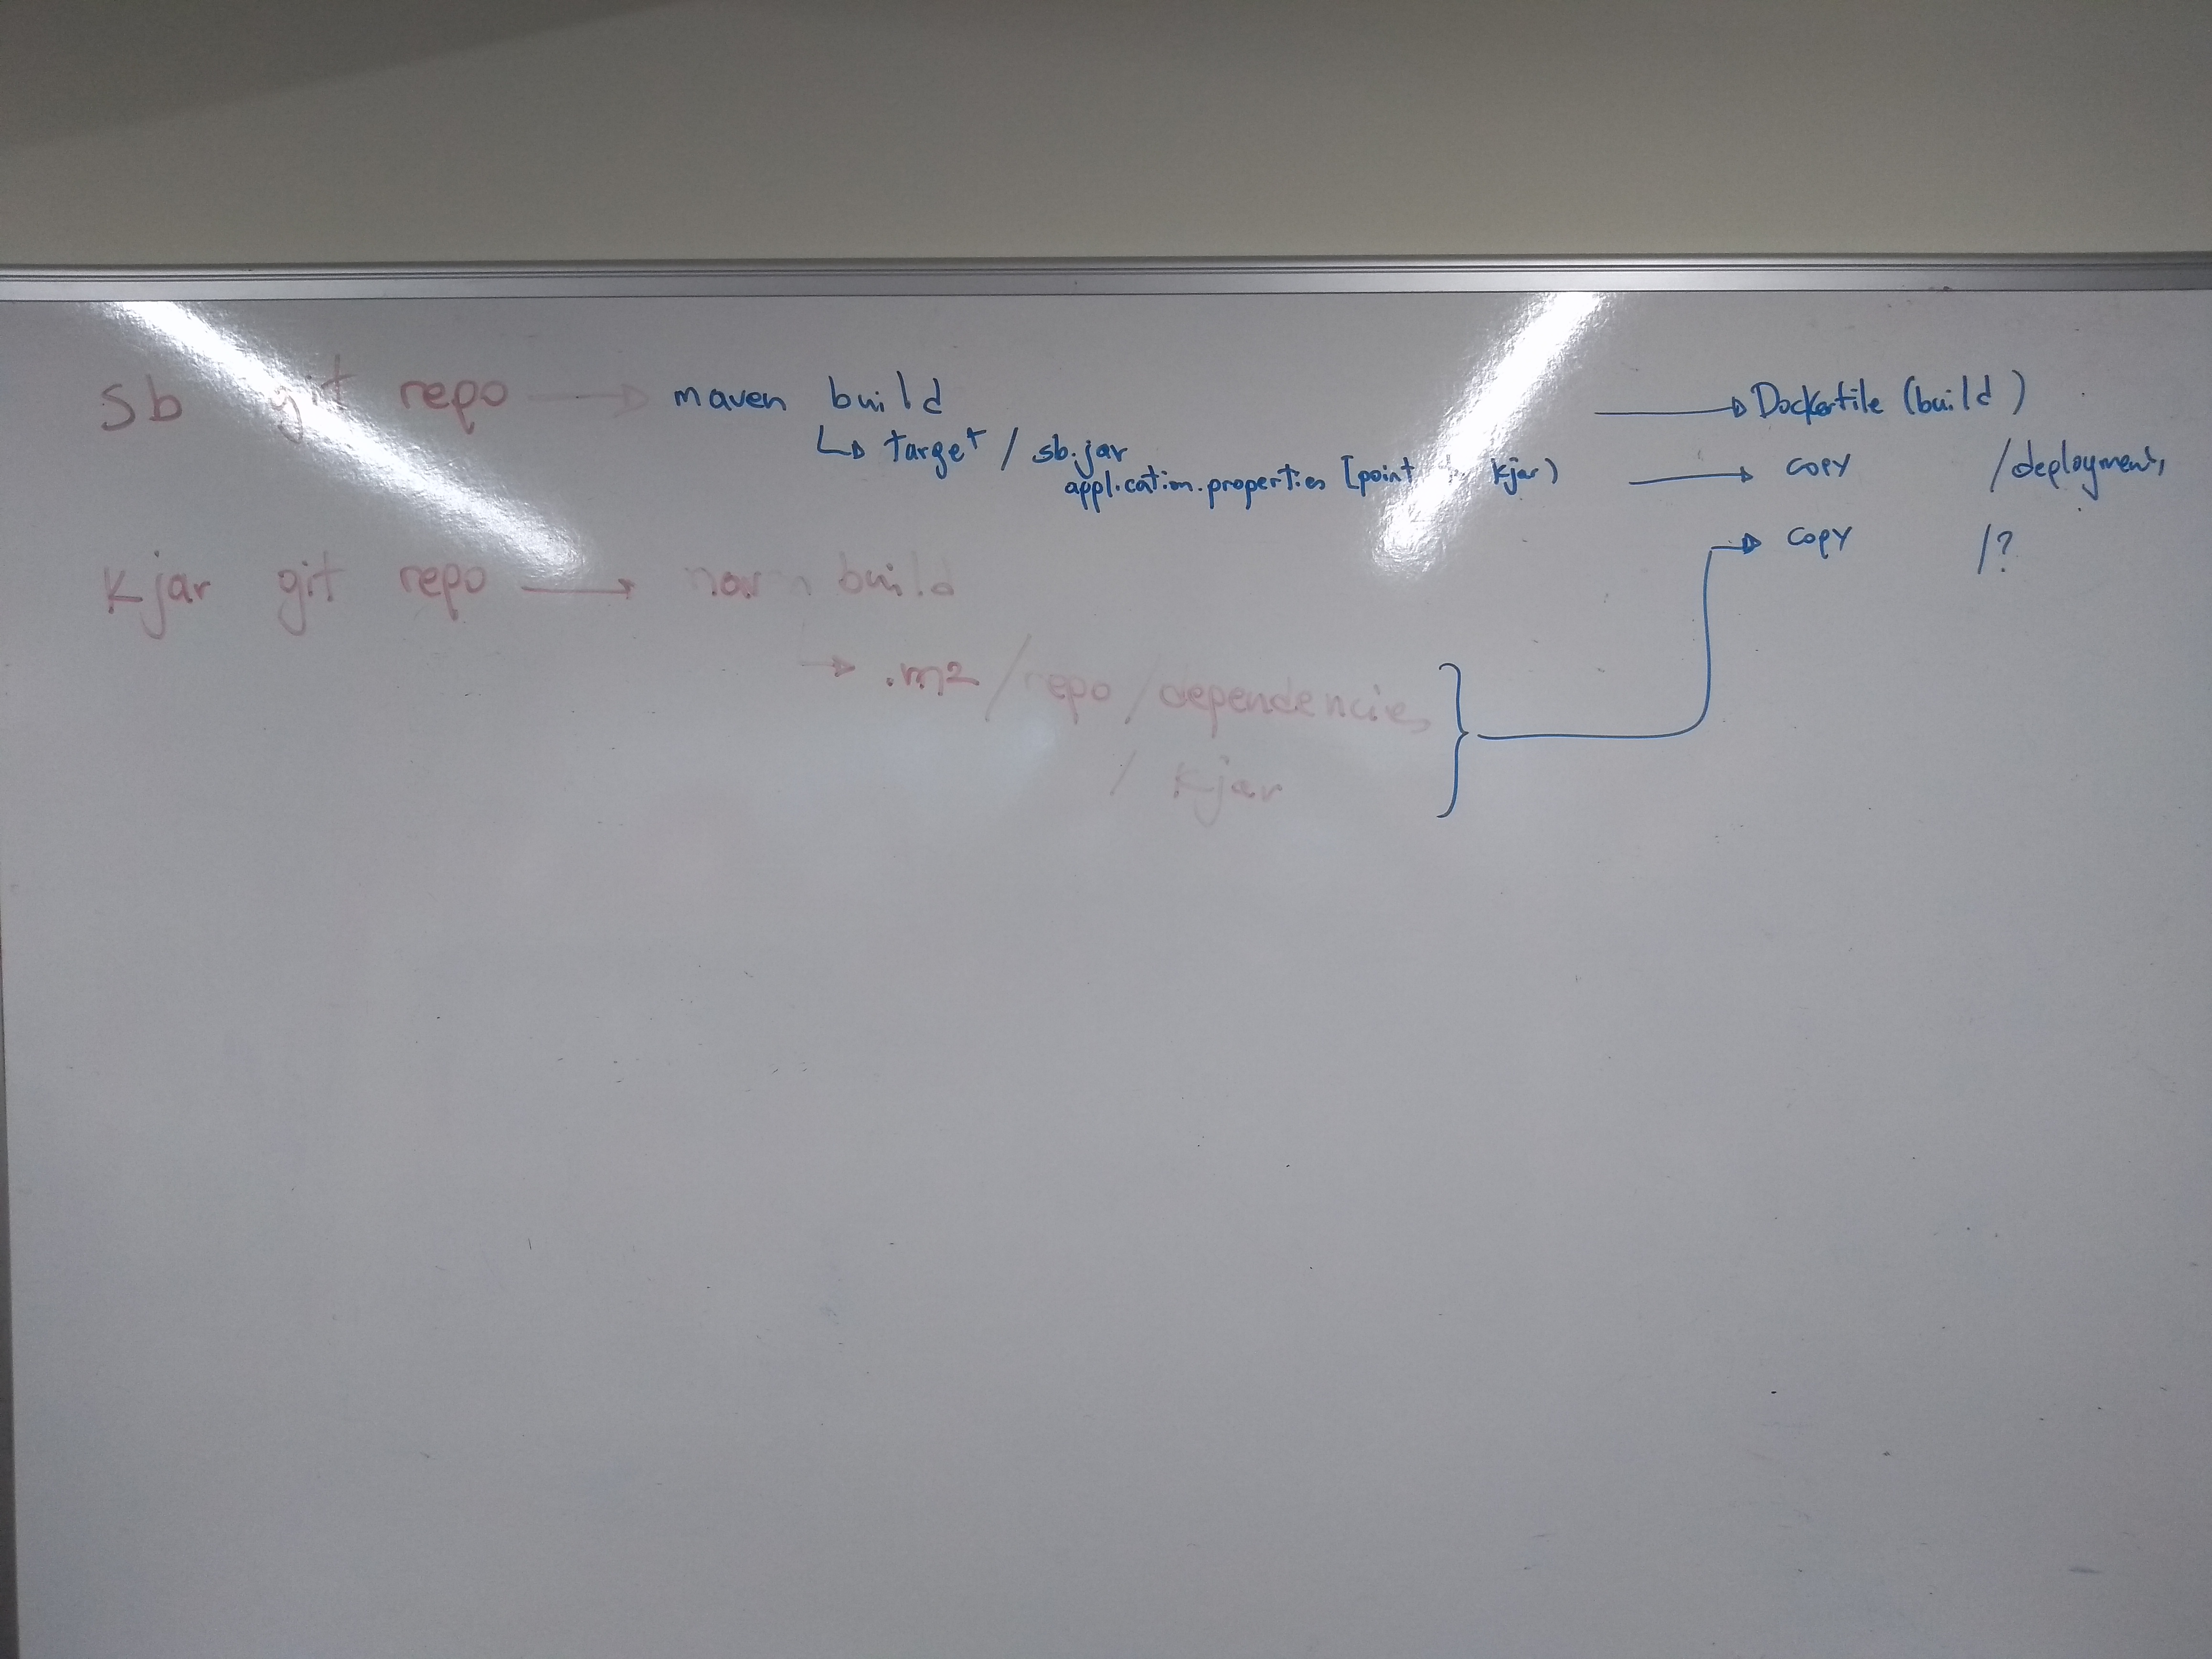 sb git repo → maven build → Dockerfile (build)
↳ target / sb.jar
application.properties [point kjar) → copy /deployments
→ copy /?
kjar git repo → build
→ .m2 / repo / dependencies
/ kjar